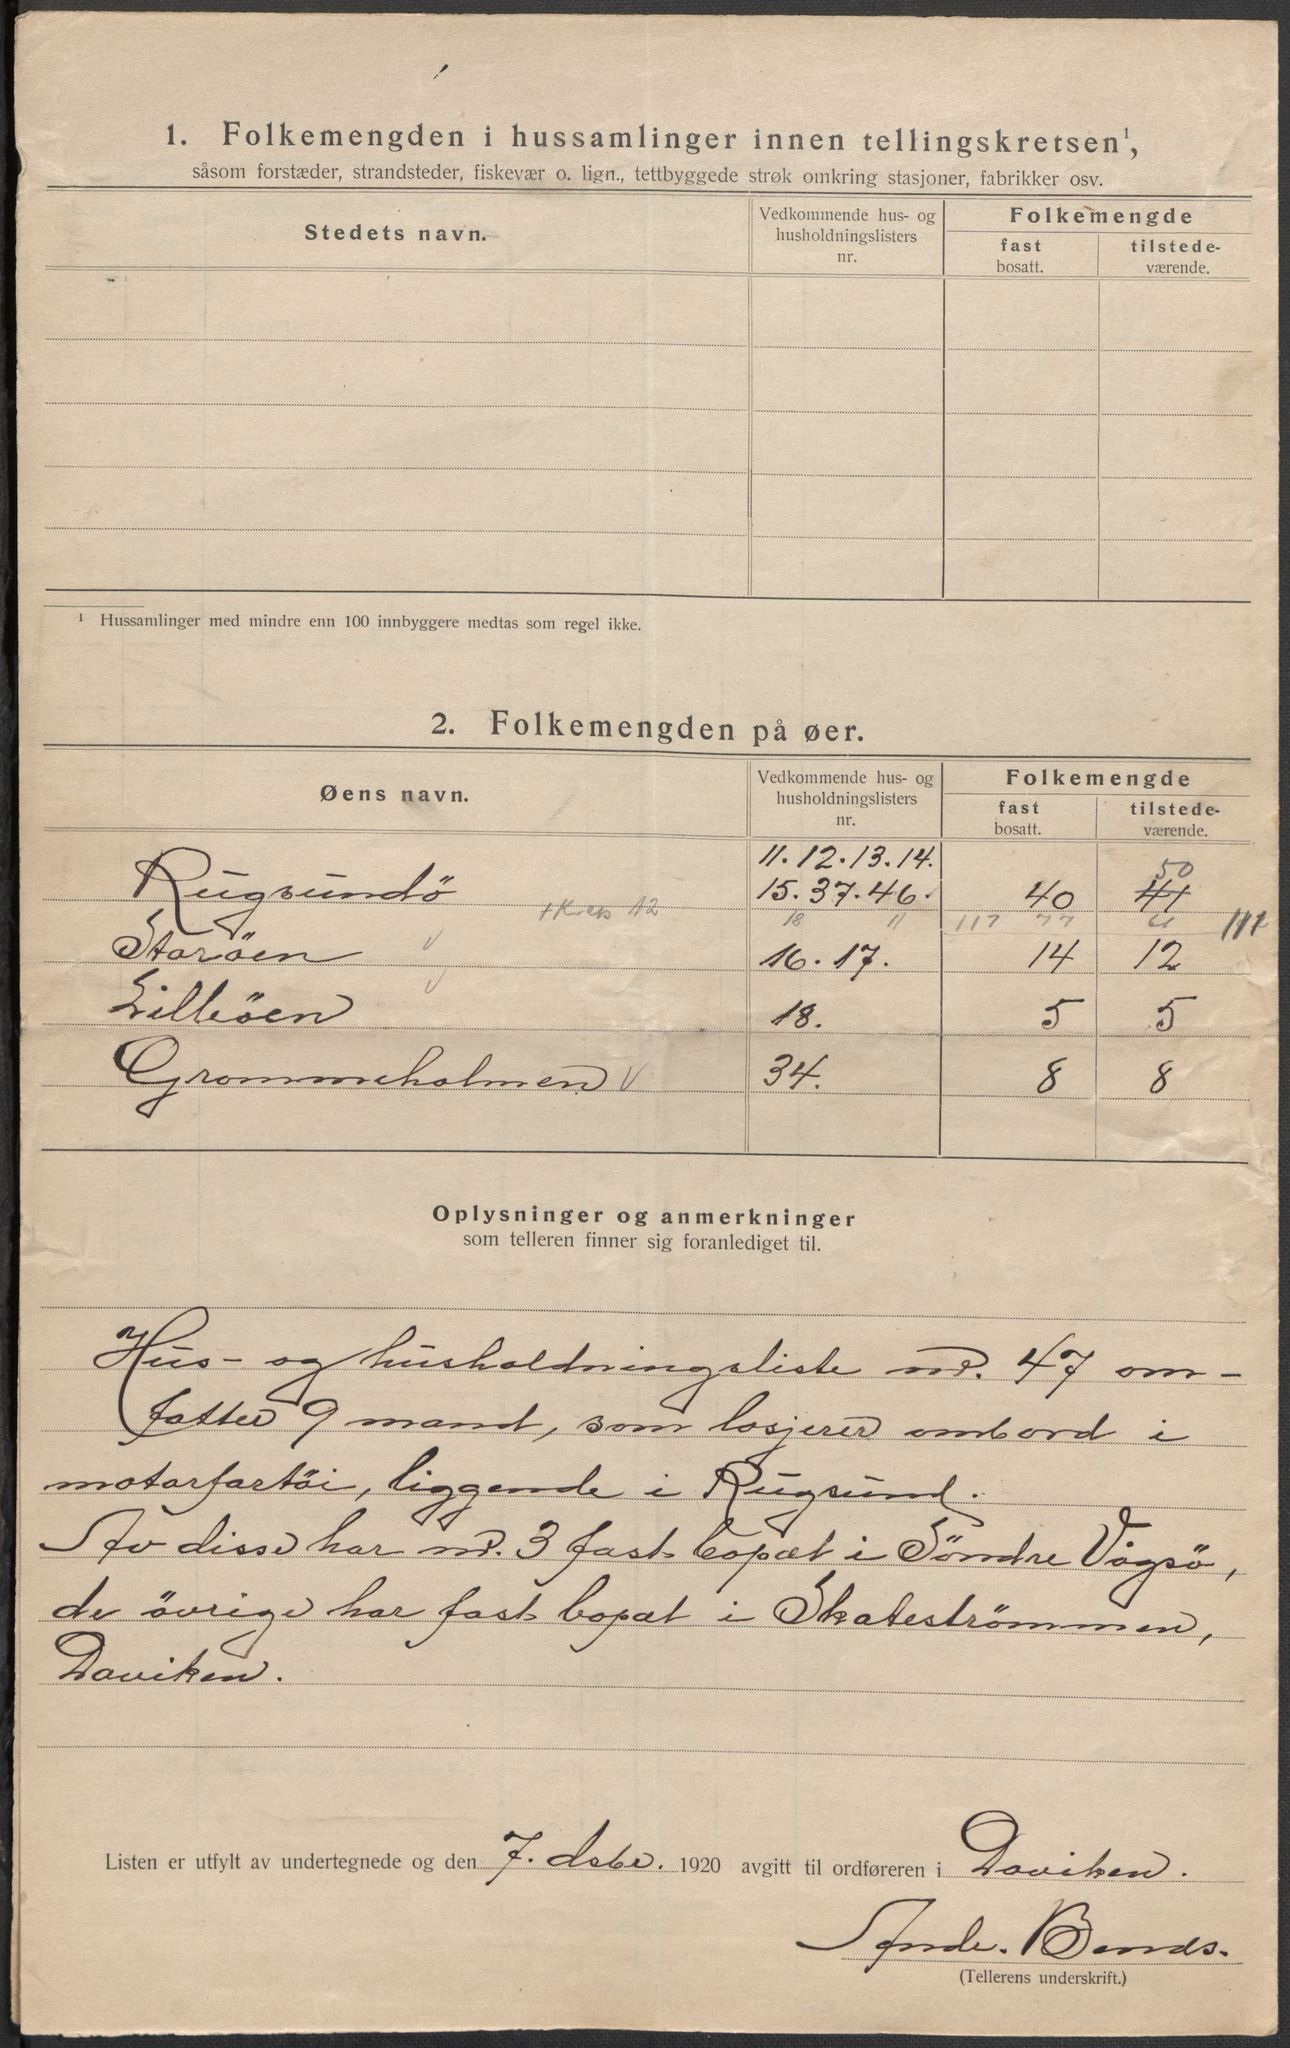 1. Folkemengden i hussamlinger innen tellingskretsen¹,
såsom forstæder, strandsteder, fiskevær o. lign., tettbyggede strøk omkring stasjoner, fabrikker osv.
Stedets navn.
Vedkommende hus- og
husholdningslisters
nr.
Folkemengde
fast
bosatt.
tilstede-
værende.
¹ Hussamlinger med mindre enn 100 innbyggere medtas som regel ikke.
2. Folkemengden på øer.
Øens navn.
Vedkommende hus- og
husholdningslisters
nr.
Folkemengde
fast
bosatt.
tilstede-
værende.
11. 12. 13. 14.
50
Rugsundö 15. 37. 46. 40 41
+ Kreds 12 18 11 117 77 111
Storöen 16. 17. 14 12
Lilleöen 18. 5 5
Grommeholmen 34. 8 8
Oplysninger og anmerkninger
som telleren finner sig foranlediget til.
Hus- og husholdningsliste nr. 47 om-
fatter 9 mand, som losjerer ombord i
motorfartöi, liggende i Rugsund.
Av disse har nr. 3 fast bopæl i Söndre Vågsö,
de övrige har fast bopæl i Skateströmmen,
Daviken.
Listen er utfylt av undertegnede og den 7. dsbr. 1920 avgitt til ordføreren i Daviken.
(Tellerens underskrift.)